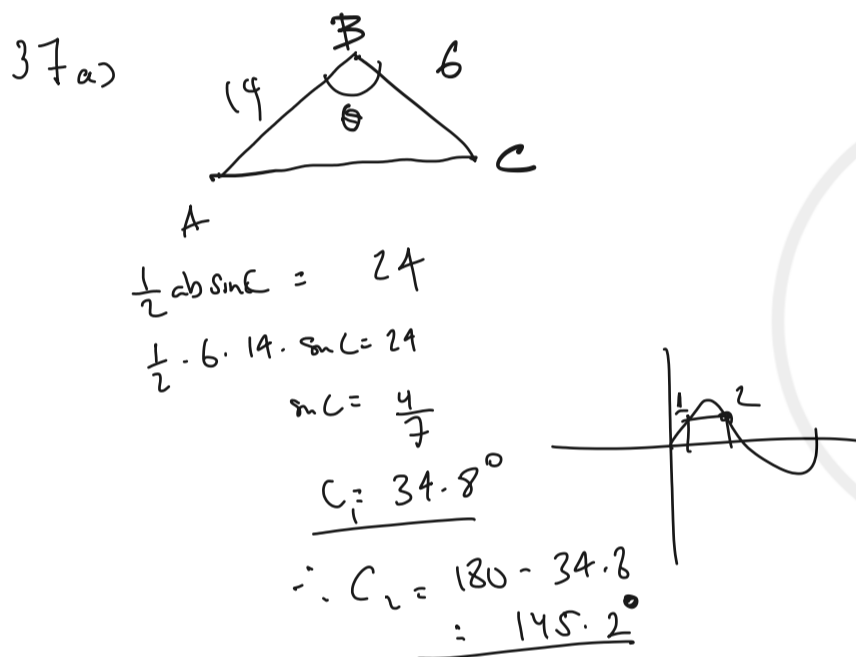 37a)
B
14
6
θ
C
A
½ ab sin C = 24
½ · 6 · 14 · sin C = 24
sin C = 4/7
1
2
C₁ = 34.8°
∴ C₂ = 180 - 34.8
= 145.2°